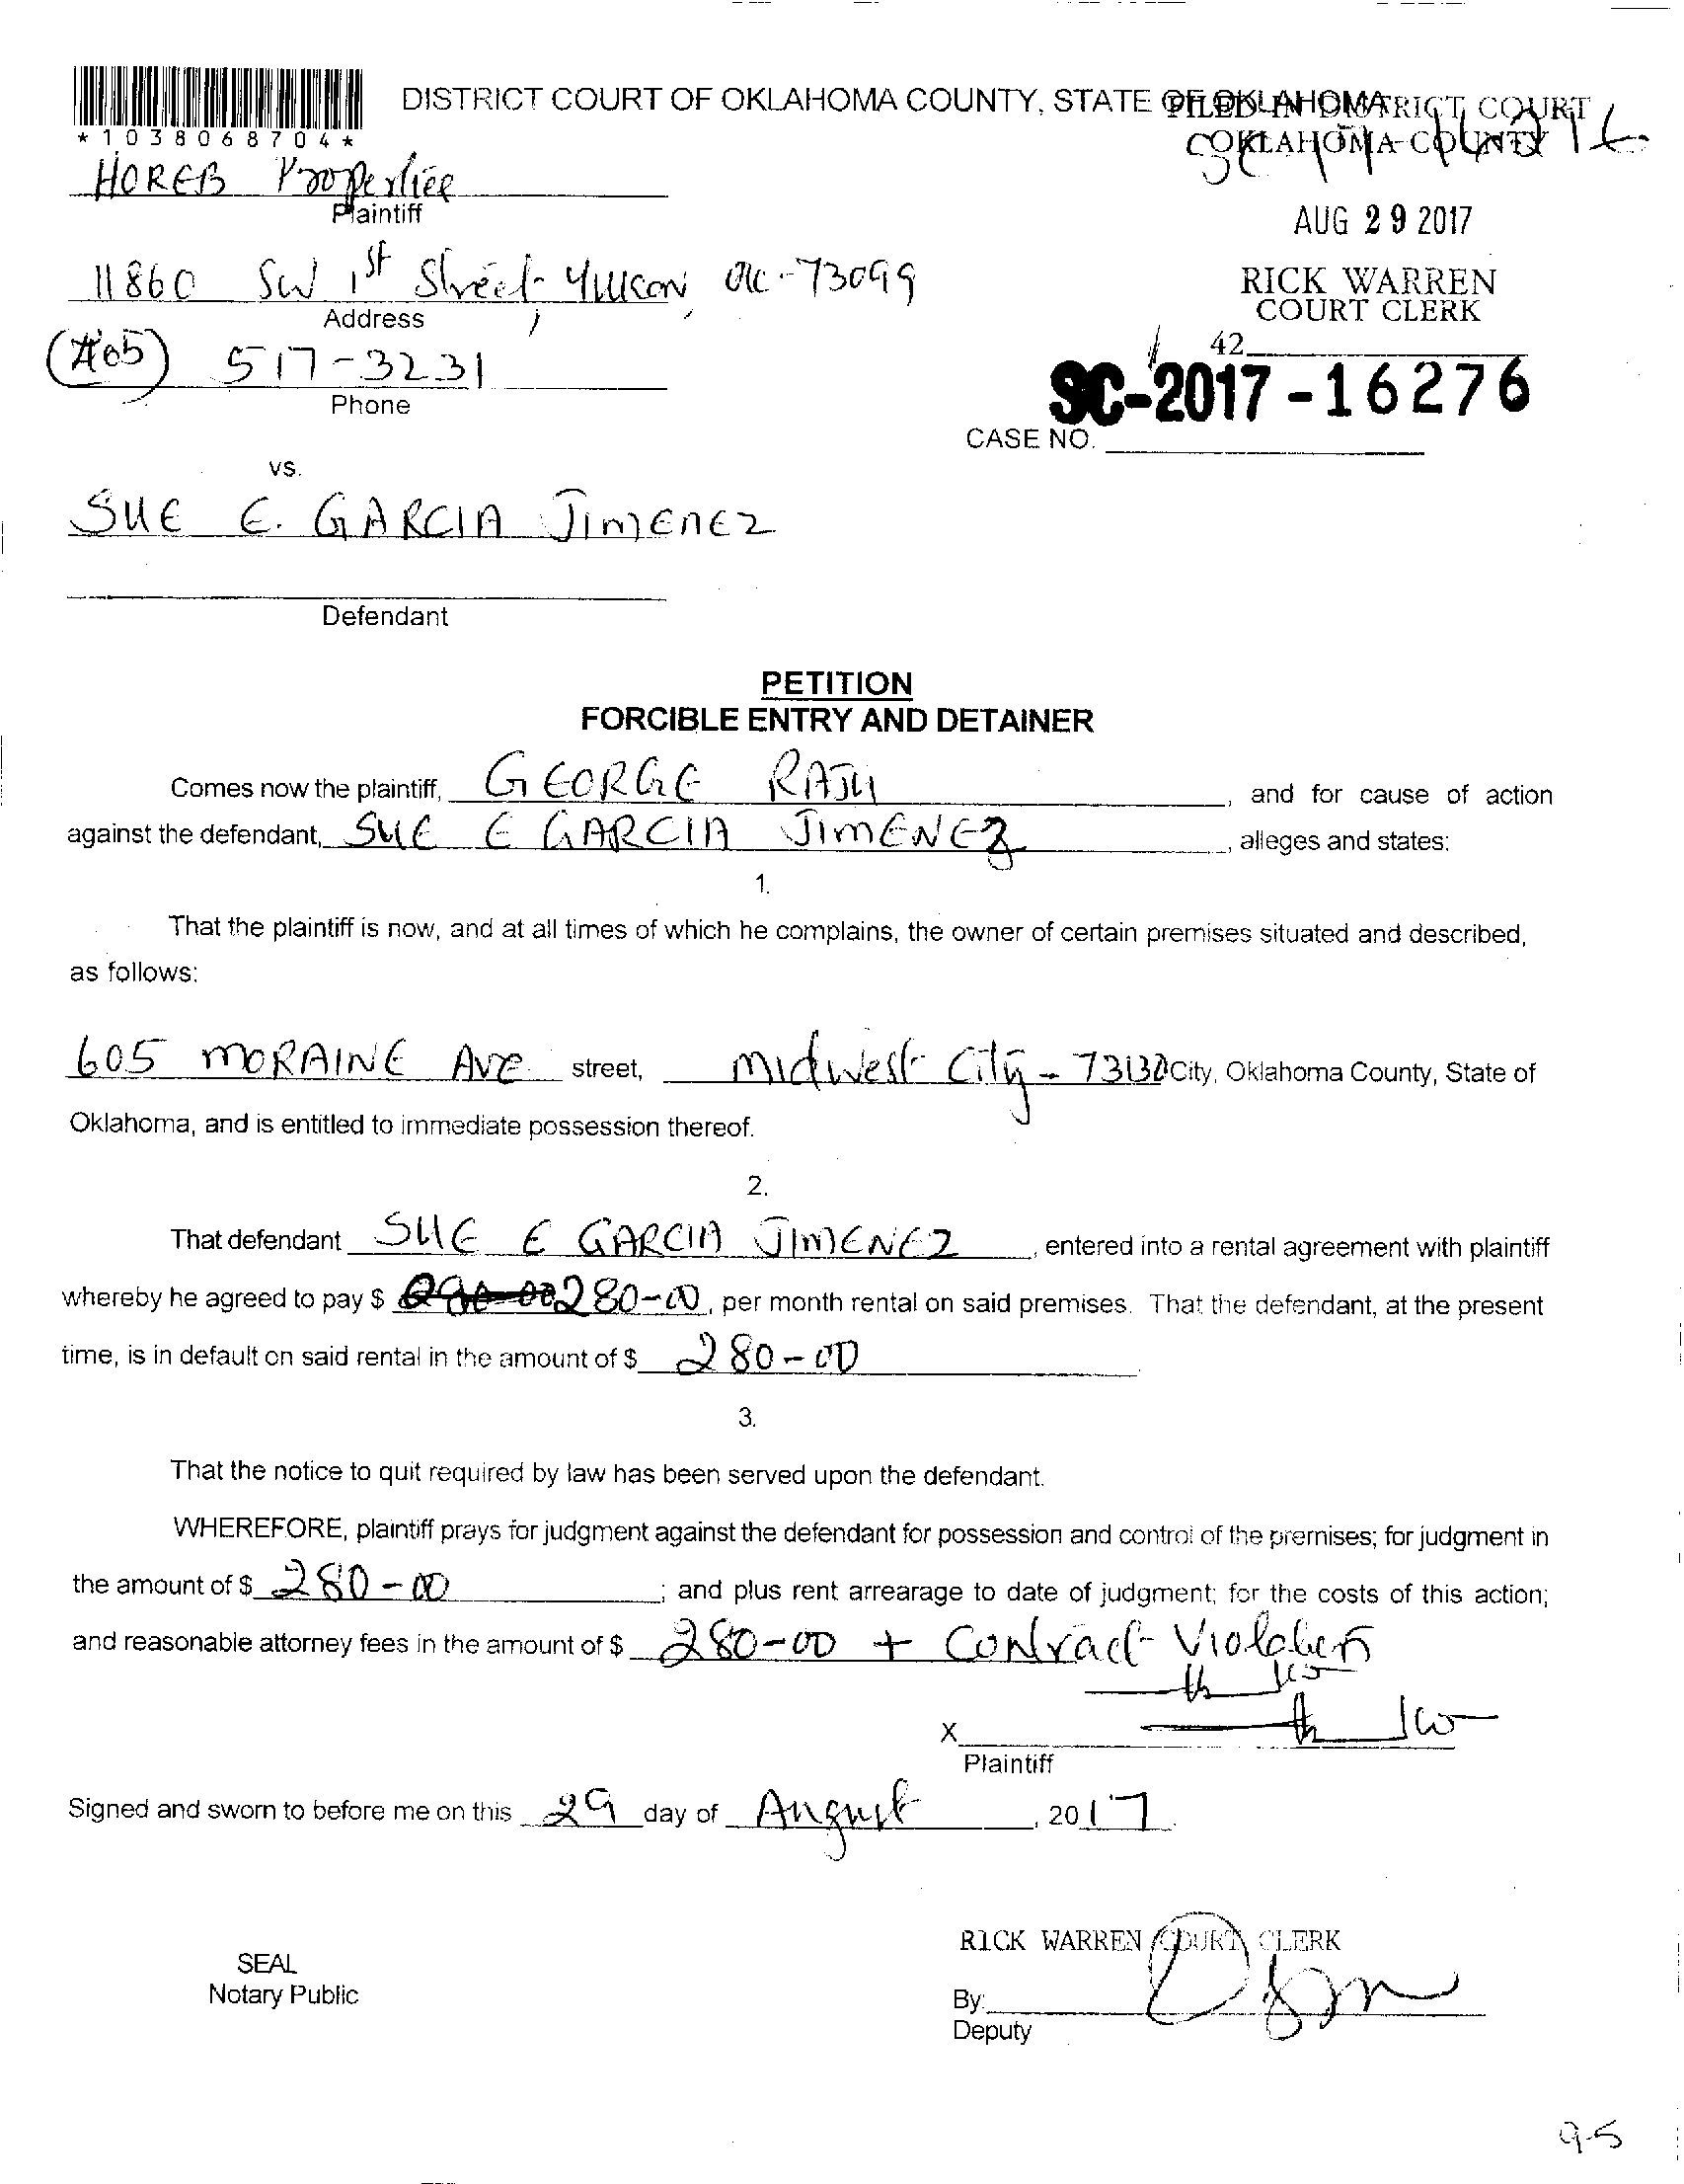 DISTRICT COURT OF OKLAHOMA COUNTY, STATE OF OKLAHOMA
FILED IN DISTRICT COURT
OKLAHOMA COUNTY
*1038068704*
HOREB Properties
Plaintiff
AUG 29 2017
11860 SW 1st Street, Yukon, OK-73099
Address
RICK WARREN
COURT CLERK
42
(405) 517-3231
Phone
SC-2017-16276
CASE NO.
vs.
SUE E. GARCIA JIMENEZ
Defendant
PETITION
FORCIBLE ENTRY AND DETAINER
Comes now the plaintiff, GEORGE RAJU, and for cause of action
against the defendant, SUE E GARCIA JIMENEZ, alleges and states:
1.
That the plaintiff is now, and at all times of which he complains, the owner of certain premises situated and described,
as follows:
605 MORAINE AVE street, Midwest City - 73130 City, Oklahoma County, State of
Oklahoma, and is entitled to immediate possession thereof.
2.
That defendant SUE E GARCIA JIMENEZ, entered into a rental agreement with plaintiff
whereby he agreed to pay $ 280-00, per month rental on said premises. That the defendant, at the present
time, is in default on said rental in the amount of $ 280-00
3.
That the notice to quit required by law has been served upon the defendant.
WHEREFORE, plaintiff prays for judgment against the defendant for possession and control of the premises; for judgment in
the amount of $ 280-00; and plus rent arrearage to date of judgment; for the costs of this action;
and reasonable attorney fees in the amount of $ 280-00 + Contract Violation
X
Plaintiff
Signed and sworn to before me on this 29 day of August, 2017.
RICK WARREN COURT CLERK
SEAL
Notary Public
By:
Deputy
9-5